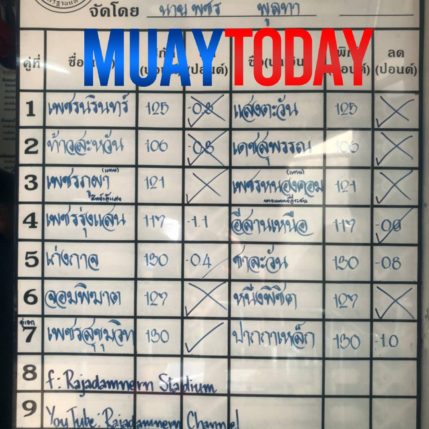 จัดโดย นายพชร พูลทา
MUAYTODAY
คู่ที่ (ปอนด์) (ปอนด์) ลด (ปอนด์)
1 เพชรนรินทร์ 125 -0.8 แสงตะวัน 125
2 ท้าวสะหวัน 106 -0.8 เดชสุพรรณ 106
3 เพชรภูผา (แทน) 121 (แทน)
4 เพชรรุ่งแสน 117 -1.1 อีสานเหนือ 117
5 เก่งกาจ 130 -0.4 ชาละวัน 130 -0.8
6 จอมพิฆาต 127 หนึ่งพิชิต 127
7 เพชรสุขุมวิท 130 ปากกาเหล็ก 130 -1.0
8 f: Rajadamnern Stadium
9 YouTube: Rajadamnern Channel